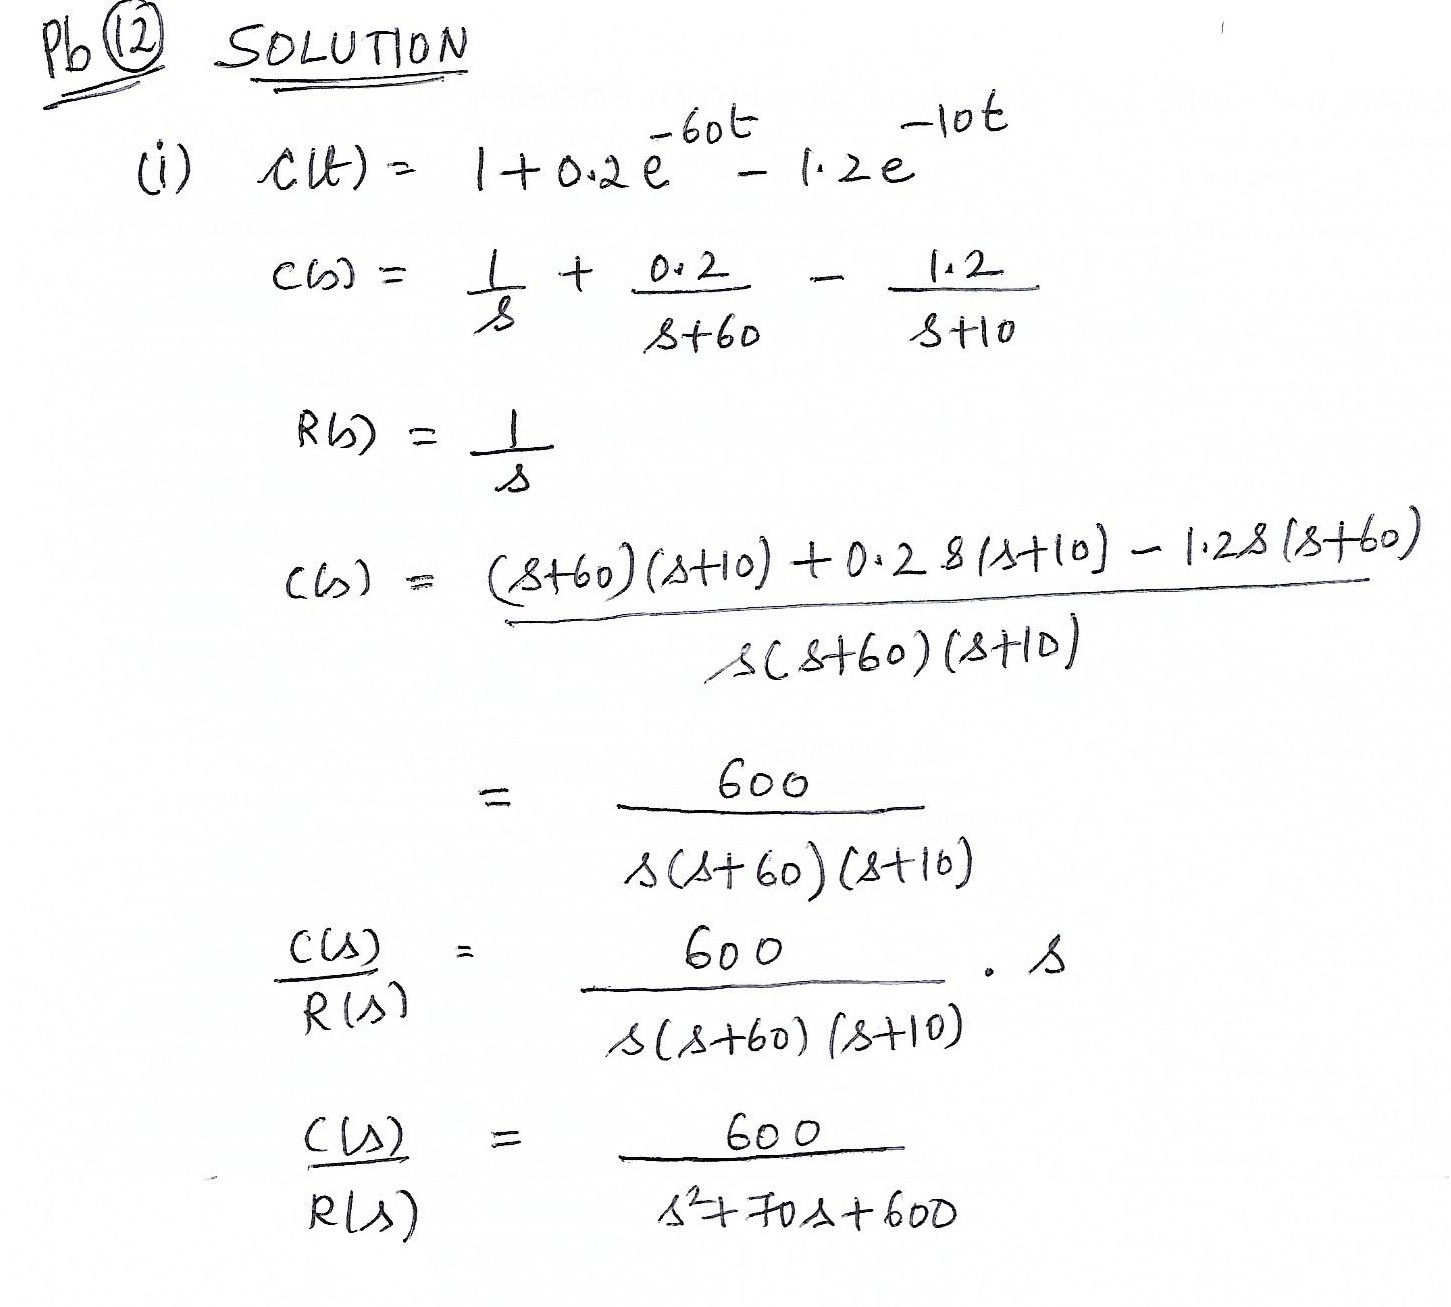 Pb 12 SOLUTION
(i) c(t) = 1+0.2e^-60t - 1.2e^-10t
C(s) = 1/s + 0.2/s+60 - 1.2/s+10
R(s) = 1/s
C(s) = (s+60)(s+10) + 0.2s(s+10) - 1.2s(s+60) / s(s+60)(s+10)
= 600 / s(s+60)(s+10)
C(s)/R(s) = 600 / s(s+60)(s+10) . s
C(s)/R(s) = 600 / s²+70s+600